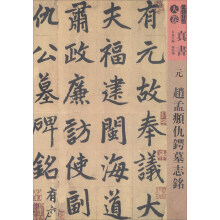 真書
元 趙孟頫仇鍔墓志銘
有元故奉議大
夫福建閩海道
肅政廉訪副
仇公墓碑銘有